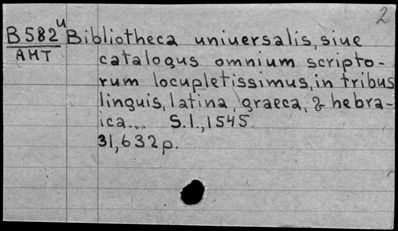 2
B582u Bibliotheca uniuersalis, siue
AHT catalogus omnium scripto-
rum locupletissimus, in tribus
linguis, latina, graeca, & hebra-
ica... S.l., 1545.
31,632p.